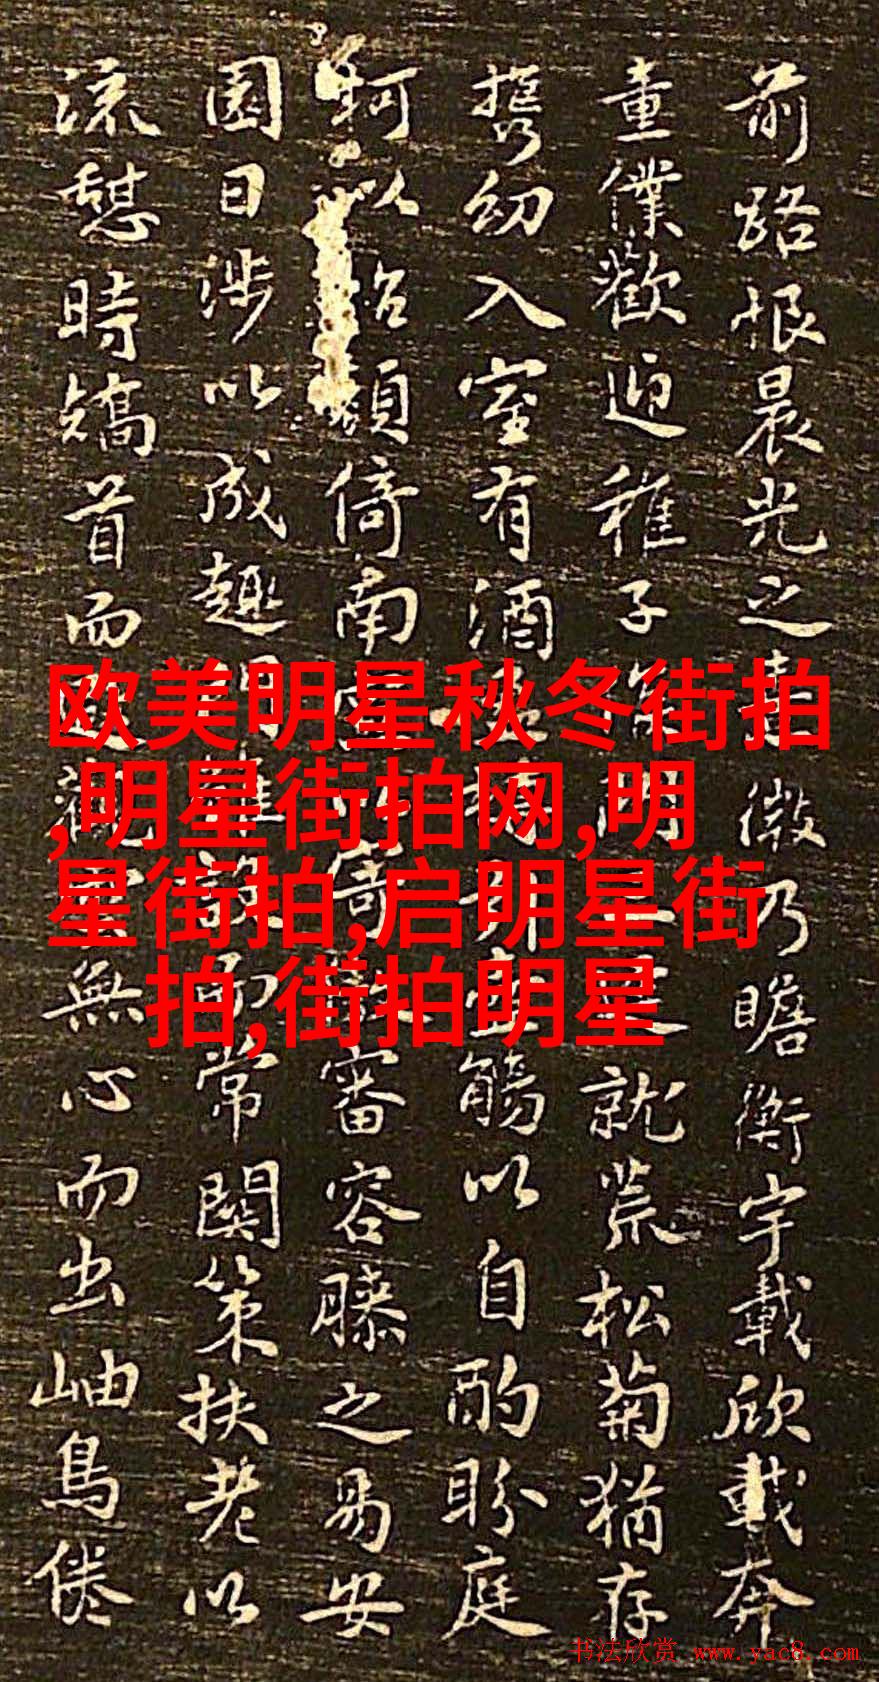 前路恨晨光之熹微乃瞻衡宇載欣載奔
童僕歡迎稚子候門三逕就荒松菊猶存
携幼入室有酒盈樽引壺觴以自酌盼庭
柯以怡顏倚南窗以寄傲審容膝之易安
園日涉以成趣門雖設而常關策扶老以
流憩時矯首而遐觀雲無心而出岫鳥倦
欧美明星秋冬街拍
,明星街拍网,明
星街拍,启明星街
拍,街拍明星
书法欣赏 www.yac8.com